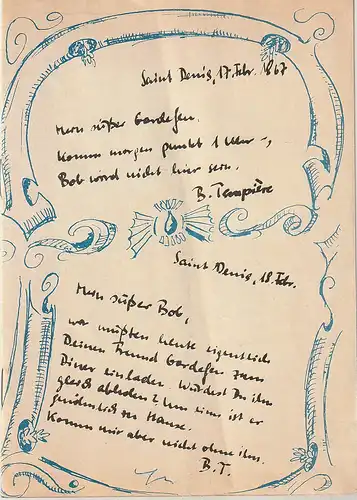 Saint Denis, 17. Febr. 1867
Mein süßer Gardefeu.
Komm morgen punkt 1 Uhr –,
Bob wird nicht hier sein.
B. Tempière
Saint Denis, 18. Febr.
Mein süßer Bob,
wir müßten heute eigentlich
Deinen Freund Gardefeu zum
Diner einladen. Würdest Du ihn
gleich abholen? Um eins ist er
zu Hause.
Komm mir aber nicht ohne ihn.
B. T.